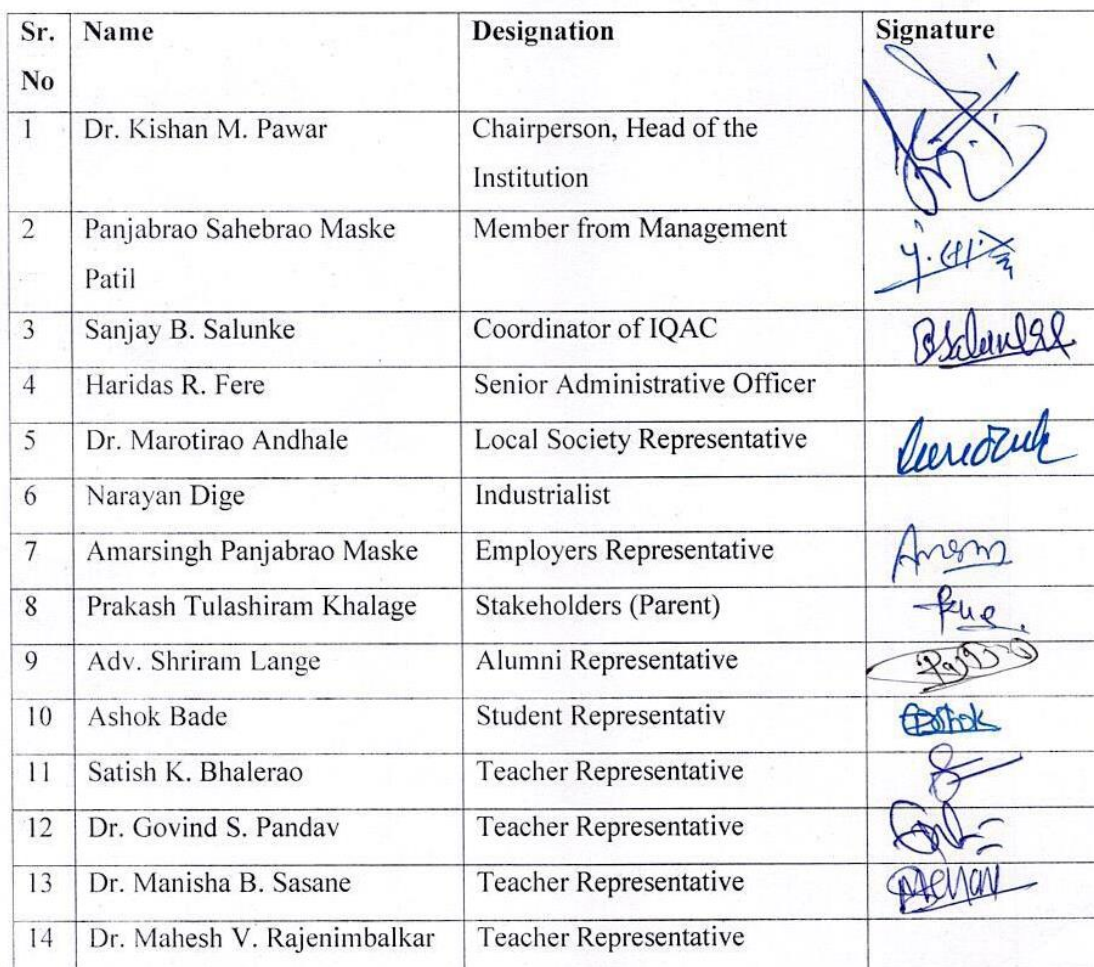 Sr. Name Designation Signature
No
1 Dr. Kishan M. Pawar Chairperson, Head of the
Institution
2 Panjabrao Sahebrao Maske Member from Management
Patil
3 Sanjay B. Salunke Coordinator of IQAC
4 Haridas R. Fere Senior Administrative Officer
5 Dr. Marotirao Andhale Local Society Representative
6 Narayan Dige Industrialist
7 Amarsingh Panjabrao Maske Employers Representative
8 Prakash Tulashiram Khalage Stakeholders (Parent)
9 Adv. Shriram Lange Alumni Representative
10 Ashok Bade Student Representativ
11 Satish K. Bhalerao Teacher Representative
12 Dr. Govind S. Pandav Teacher Representative
13 Dr. Manisha B. Sasane Teacher Representative
14 Dr. Mahesh V. Rajenimbalkar Teacher Representative